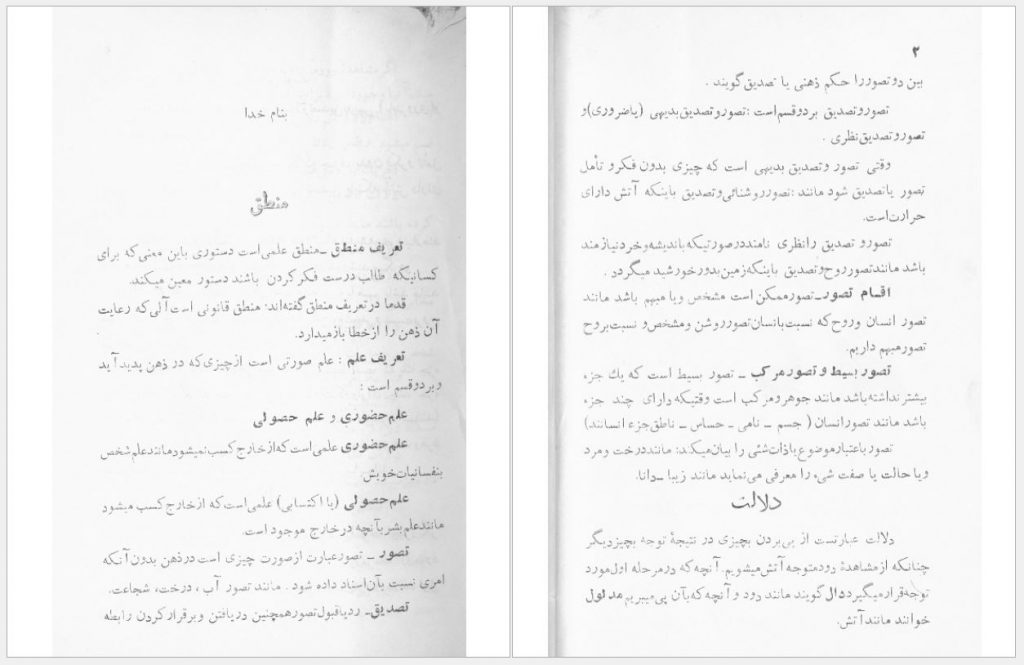 بنام خدا
منطق
تعریف منطق ـ منطق علمی است دستوری باین معنی که برای
کسانیکه طالب درست فکر کردن باشند دستور معین میکند.
قدما در تعریف منطق گفته‌اند: منطق قانونی است آلی که رعایت
آن ذهن را از خطا باز میدارد.
تعریف علم : علم صورتی است از چیزی که در ذهن پدید آید
و بر دو قسم است :
علم حضوری و علم حصولی
علم حضوری علمی است که از خارج کسب نمیشود مانند علم شخص
بنفسانیات خویش.
علم حصولی (یا اکتسابی) علمی است که از خارج کسب میشود
مانند علم بشر بآنچه در خارج موجود است.
تصور ـ تصور عبارت از صورت چیزی است در ذهن بدون آنکه
امری نسبت بآن اسناد داده شود . مانند تصور آب ، درخت، شجاعت.
تصدیق ـ رد یا قبول تصور همچنین دریافتن و برقرار کردن رابطه
۲
بین دو تصور را حکم ذهنی یا تصدیق گویند .
تصور و تصدیق بر دو قسم است : تصور و تصدیق بدیهی (یا ضروری) و
تصور و تصدیق نظری .
وقتی تصور و تصدیق بدیهی است که چیزی بدون فکر و تأمل
تصور یا تصدیق شود مانند : تصور روشنائی و تصدیق باینکه آتش دارای
حرارت است.
تصور و تصدیق را نظری نامند در صورتیکه باندیشه و خرد نیازمند
باشد مانند تصور روح و تصدیق باینکه زمین بدور خورشید میگردد .
اقسام تصور ـ تصور ممکن است مشخص و یا مبهم باشد مانند
تصور انسان و روح که نسبت بانسان تصور روشن و مشخص و نسبت بروح
تصور مبهم داریم.
تصور بسیط و تصور مرکب ـ تصور بسیط است که یك جزء
بیشتر نداشته باشد مانند جوهر و مرکب است وقتیکه دارای چند جزء
باشد مانند تصور انسان ( جسم ـ نامی ـ حساس ـ ناطق جزء انسانند)
تصور باعتبار موضوع یا ذات شئی را بیان میکند: مانند درخت و مرد
و یا حالت یا صفت شیء را معرفی می‌نماید مانند زیبا ـ دانا.
دلالت
دلالت عبارتست از پی بردن بچیزی در نتیجهٔ توجه بچیز دیگر
چنانکه از مشاهدهٔ دود متوجه آتش میشویم. آنچه که در مرحله اول مورد
توجه قرار میگیرد دال گویند مانند دود و آنچه که بآن پی میبریم مدلول
خوانند مانند آتش.